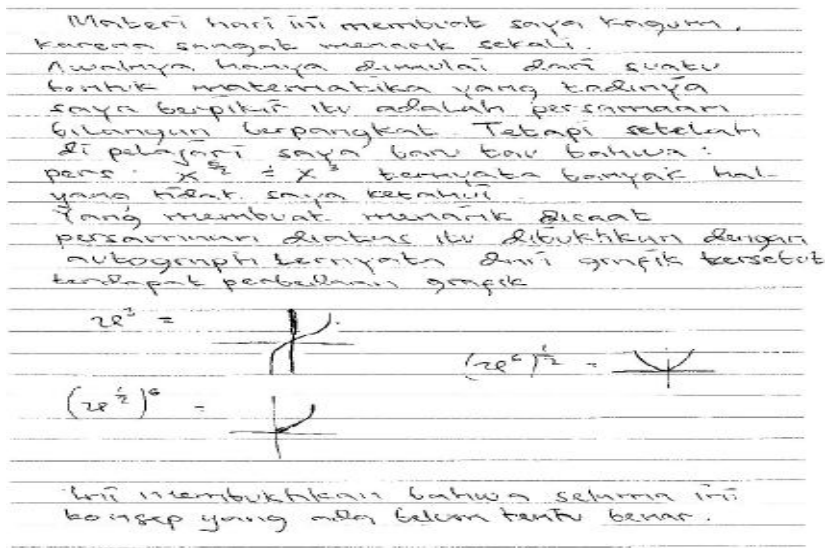 Materi hari ini membuat saya kagum,
karena sangat menarik sekali.
Awalnya hanya dimulai dari suatu
bentuk matematika yang tadinya
saya berpikir itu adalah persamaan
bilangan berpangkat. Tetapi setelah
di pelajari saya baru tau bahwa :
pers. x^{6/2} ≠ x^3 ternyata banyak hal
yang tidak saya ketahui.
Yang membuat menarik disaat
persamaan diatas itu dibuktikan dengan
autograph ternyata dari grafik tersebut
terdapat perbedaan grafik
x^3 =
(x^6)^{1/2} =
(x^{1/2})^6 =
Ini membuktikan bahwa selama ini
konsep yang ada belum tentu benar.